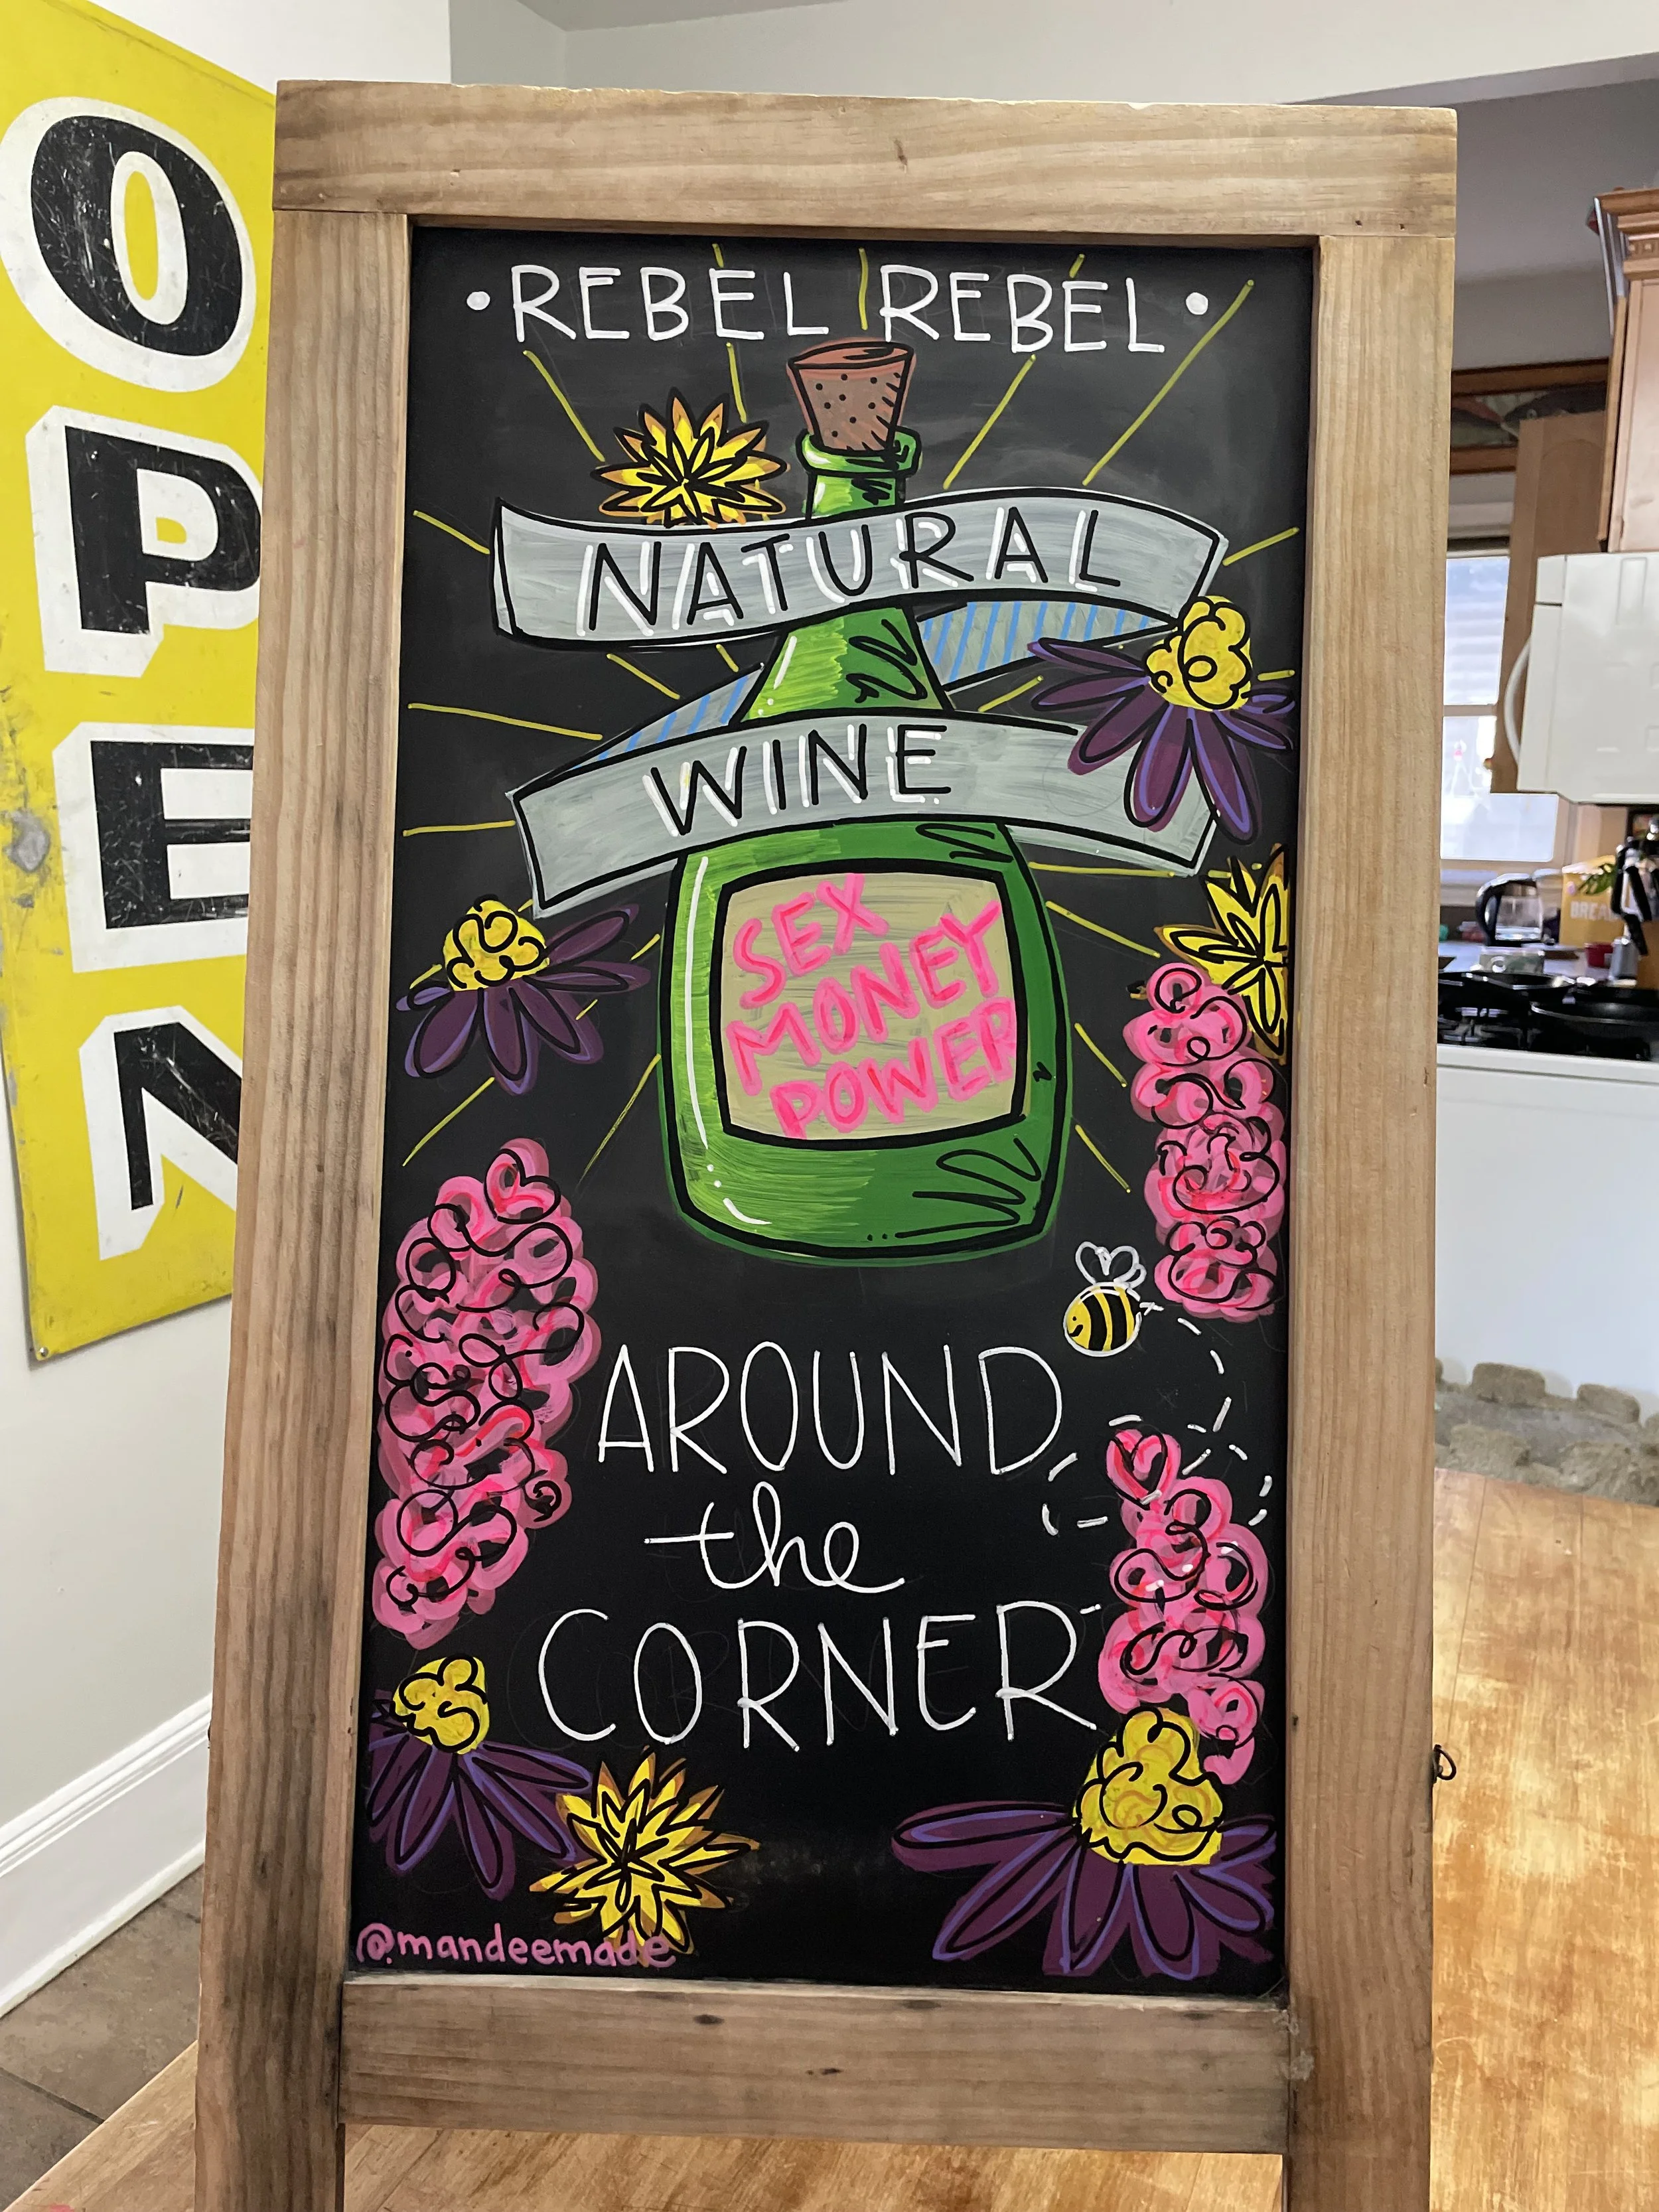 OPEN
• REBEL REBEL •
NATURAL
WINE
SEX
MONEY
POWER
AROUND
the
CORNER
@mandeemade
BREAD